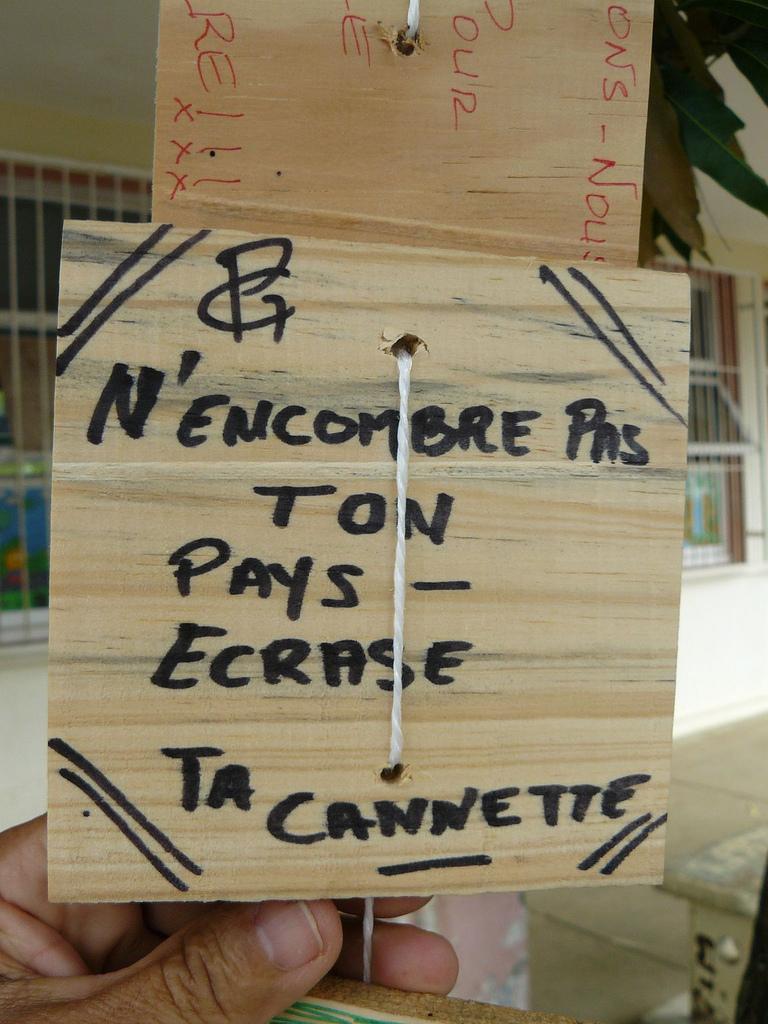 RE!!!
E
POUR
ONS-NOUS
N'ENCOMBRE PAS
TON
PAYS -
ECRASE
TA
CANNETTE